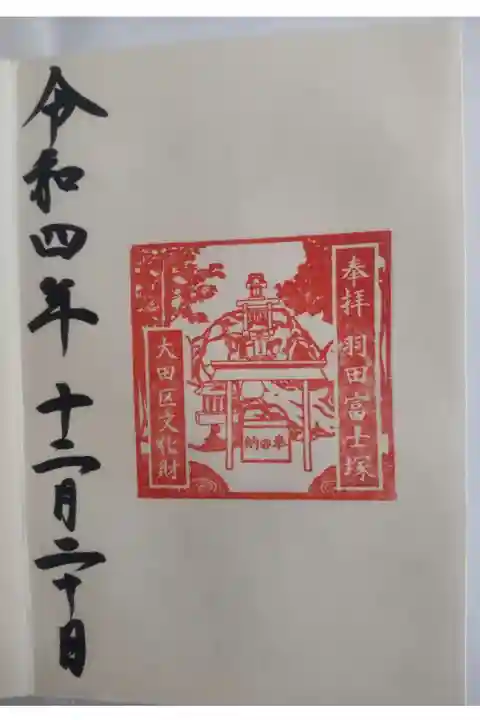 奉拝 羽田富士塚
奉納
大田区文化財
令和四年 十二月二十日